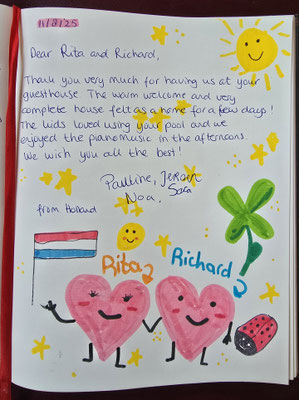 11/8/25
Dear Rita and Richard,
Thank you very much for having us at your
guesthouse. The warm welcome and very
complete house felt as a home for a few days!
The kids loved using your pool and we
enjoyed the pianomusic in the afternoons.
We wish you all the best!
Pauline, Jeroen
Noa, Sara
from Holland
Rita
Richard